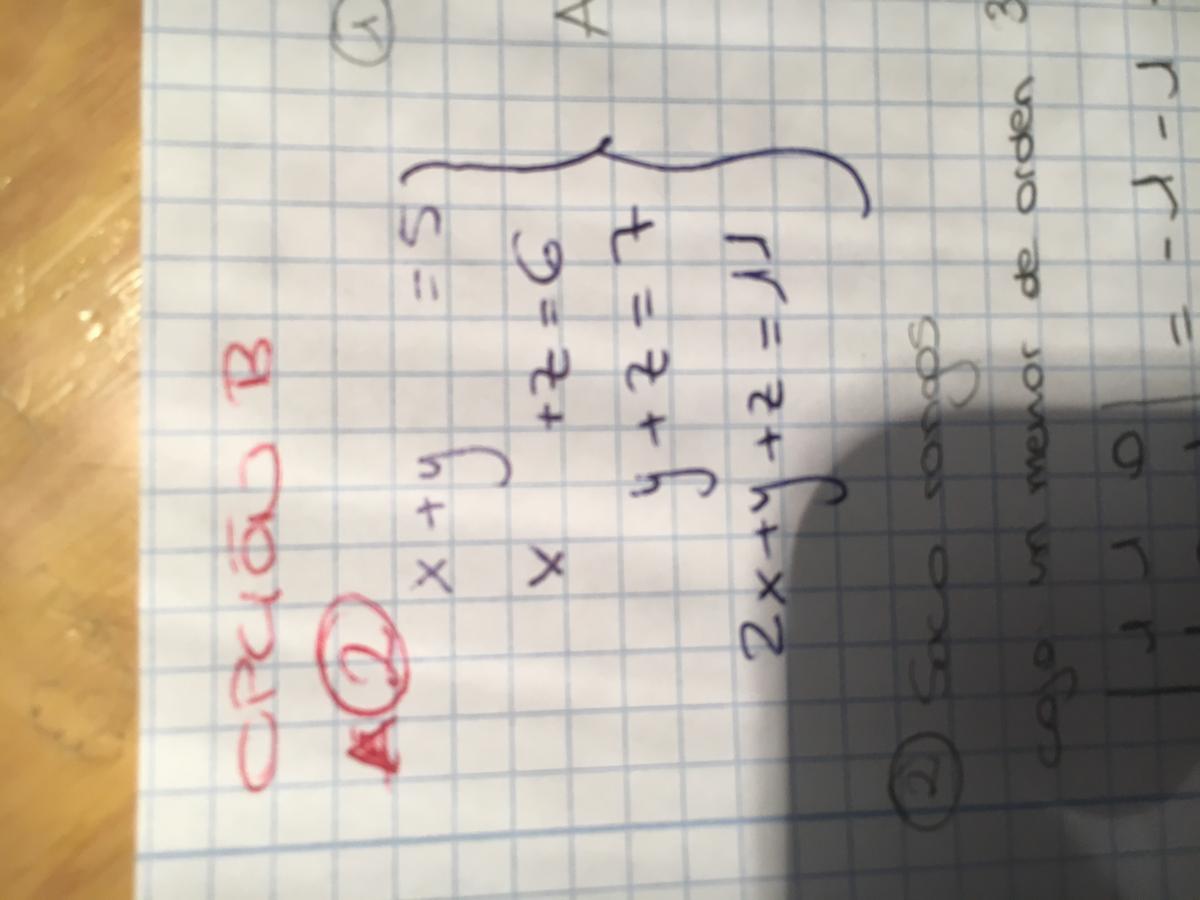 OPCIÓN B
A ②
x + y = 5
x + z = 6
y + z = 7
2x + y + z = 11
①
A
② Saco rangos
cojo un menor de orden 3
| 1 1 0 | = -1 -1